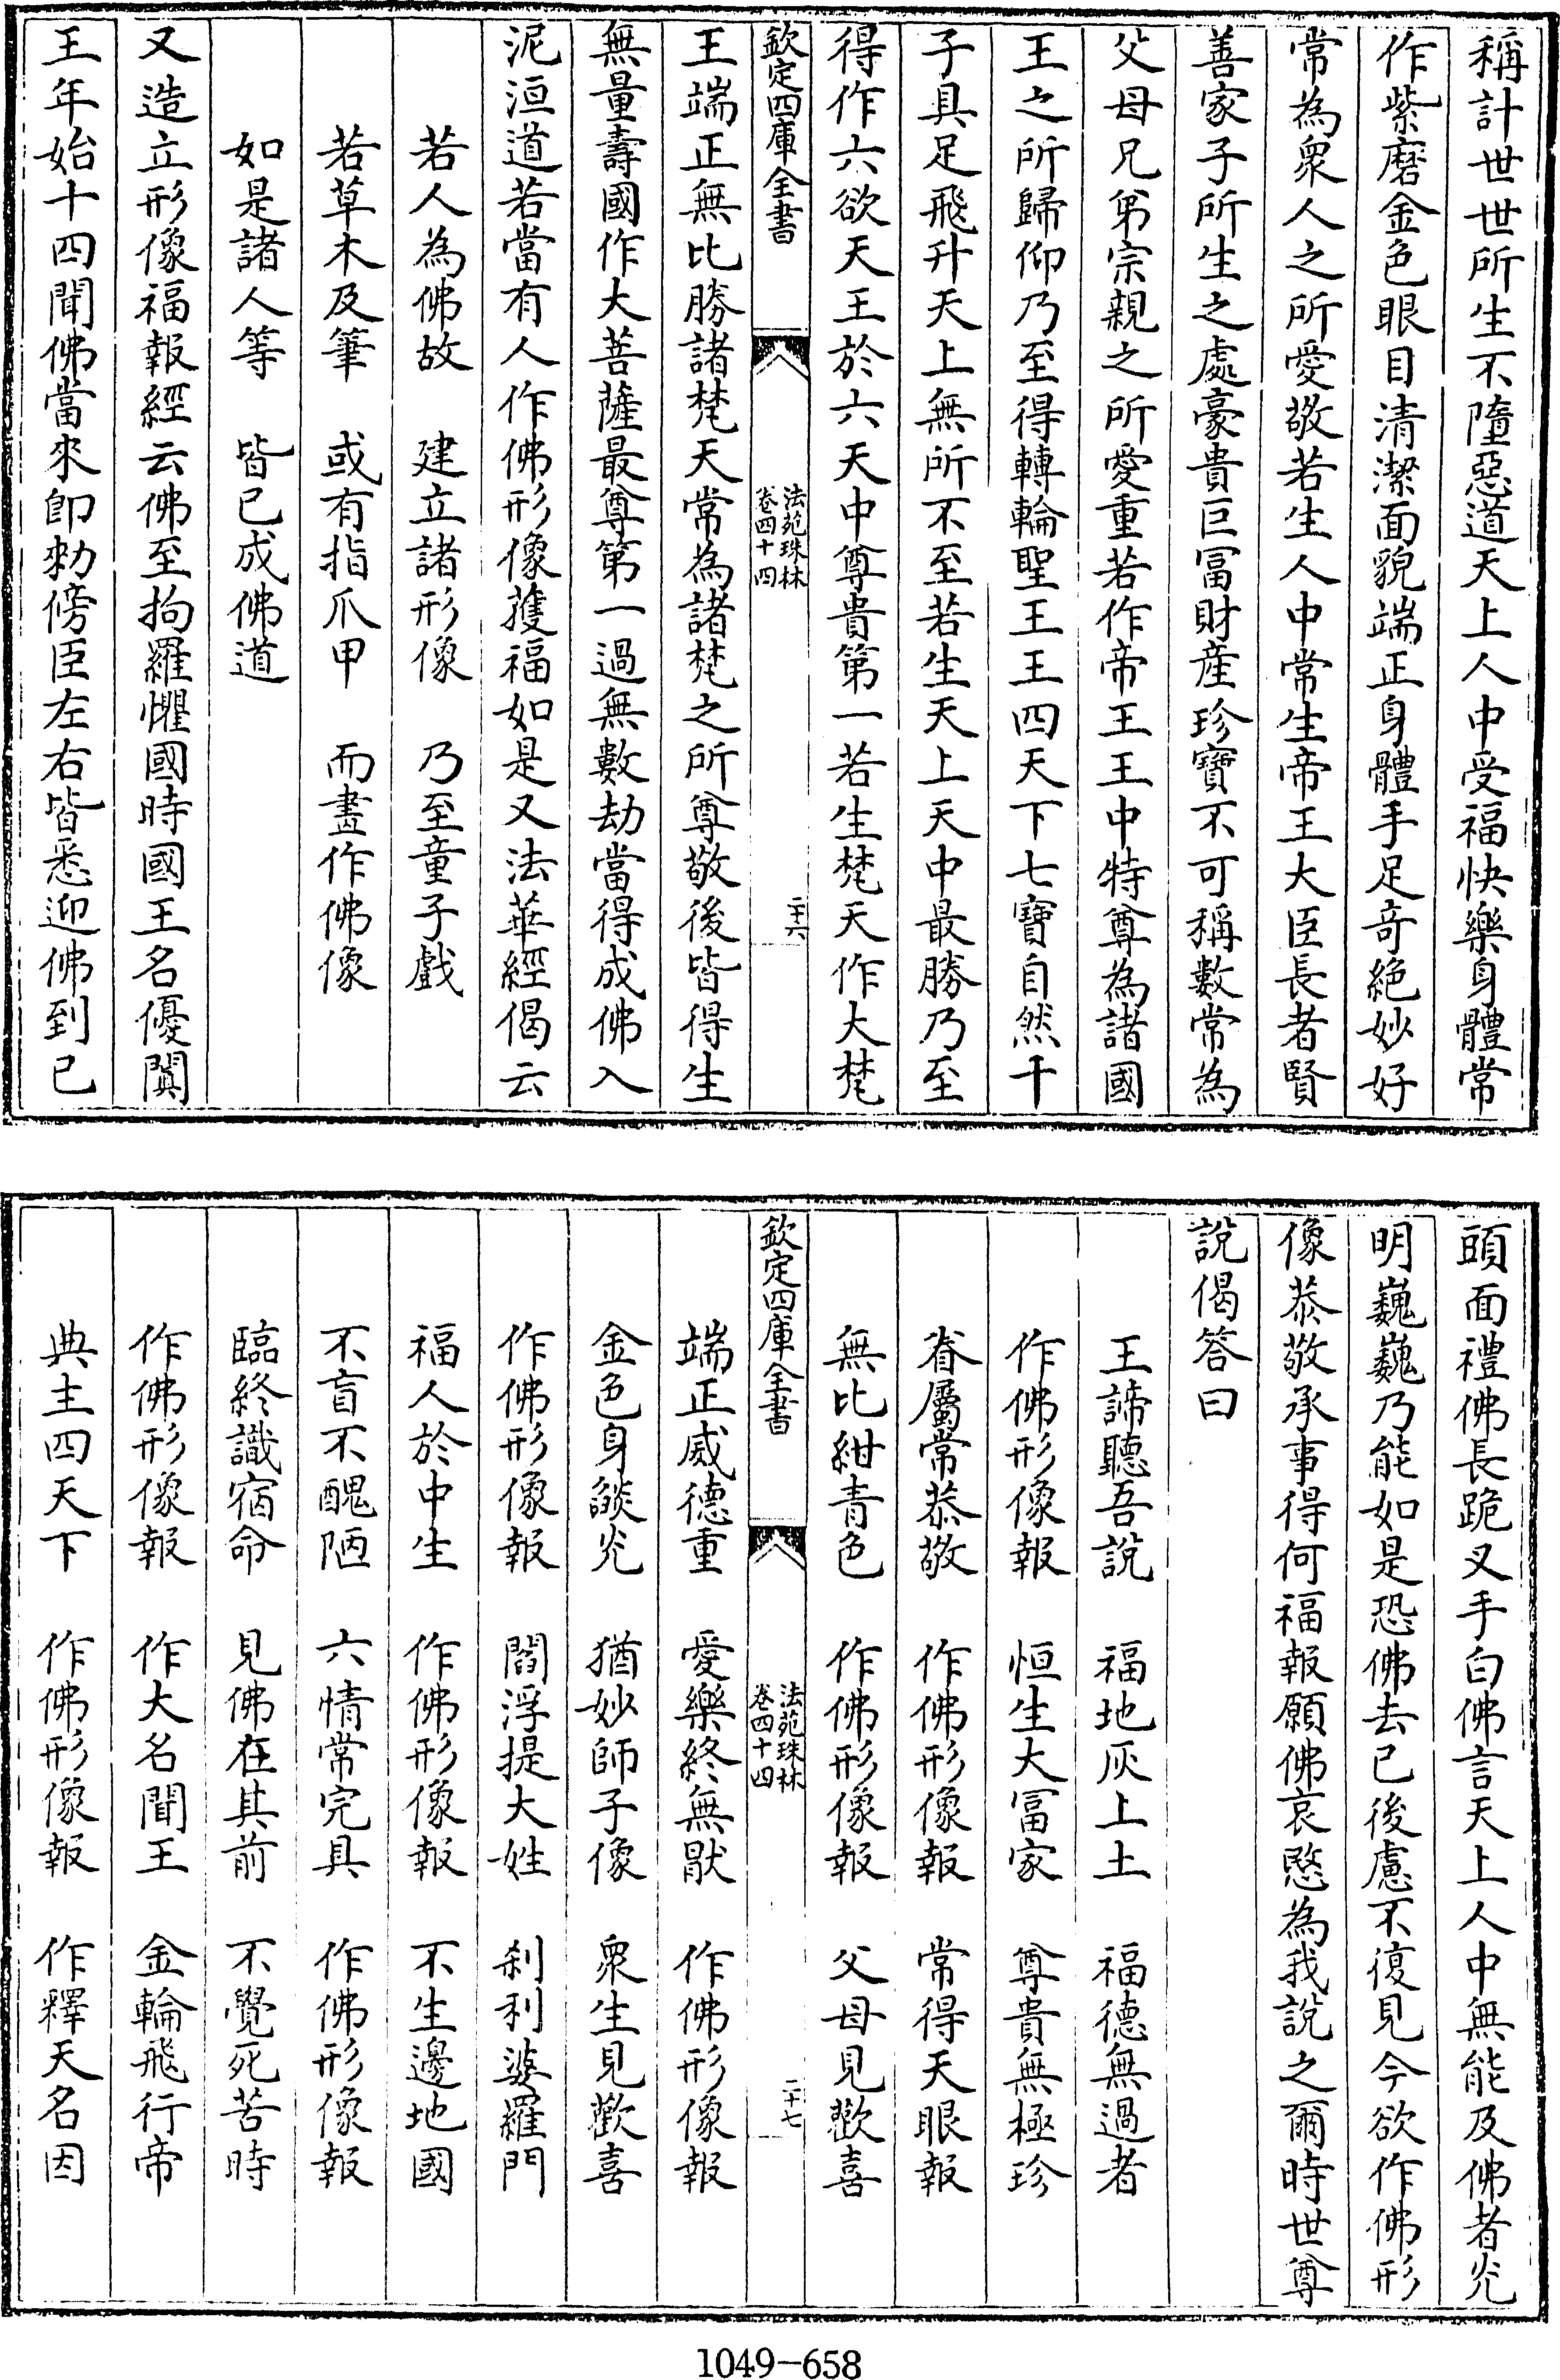 稱計世世所生不墮惡道天上人中受福快樂身體常
作紫磨金色眼目清潔面貌端正身體手足奇絶妙好
常為衆人之所愛敬若生人中常生帝王大臣長者賢
善家子所生之處豪貴巨冨財産珍寶不可稱數常為
父母兄弟宗親之所愛重若作帝王王中特尊為諸國
王之所歸仰乃至得轉輪聖王王四天下七寶自然千
子具足飛升天上無所不至若生天上天中最勝乃至
得作六欲天王於六天中尊貴第一若生梵天作大梵
欽定四庫全書
法苑珠林
卷四十四
二十六
王端正無比勝諸梵天常為諸梵之所尊敬後皆得生
無量壽國作大菩薩最尊第一過無數劫當得成佛入
泥洹道若當有人作佛形像獲福如是又法華經偈云
若人為佛故　建立諸形像　乃至童子戲
若草木及筆　或有指爪甲　而畫作佛像
如是諸人等　皆已成佛道
又造立形像福報經云佛至拘羅懼國時國王名優闐
王年始十四聞佛當來即勑傍臣左右皆悉迎佛到已
頭面禮佛長跪叉手白佛言天上人中無能及佛者光
明巍巍乃能如是恐佛去已後慮不復見今欲作佛形
像恭敬承事得何福報願佛哀愍為我說之爾時世尊
說偈答曰
王諦聽吾說　福地灰上土　福德無過者
作佛形像報　恒生大冨家　尊貴無極珍
眷屬常恭敬　作佛形像報　常得天眼報
無比紺青色　作佛形像報　父母見歡喜
欽定四庫全書
法苑珠林
卷四十四
二十七
端正威德重　愛樂終無厭　作佛形像報
金色身燄光　猶妙師子像　衆生見歡喜
作佛形像報　閻浮提大姓　刹利婆羅門
福人於中生　作佛形像報　不生邊地國
不盲不醜陋　六情常完具　作佛形像報
臨終識宿命　見佛在其前　不覺死苦時
作佛形像報　作大名聞王　金輪飛行帝
典主四天下　作佛形像報　作釋天名因
1049-658